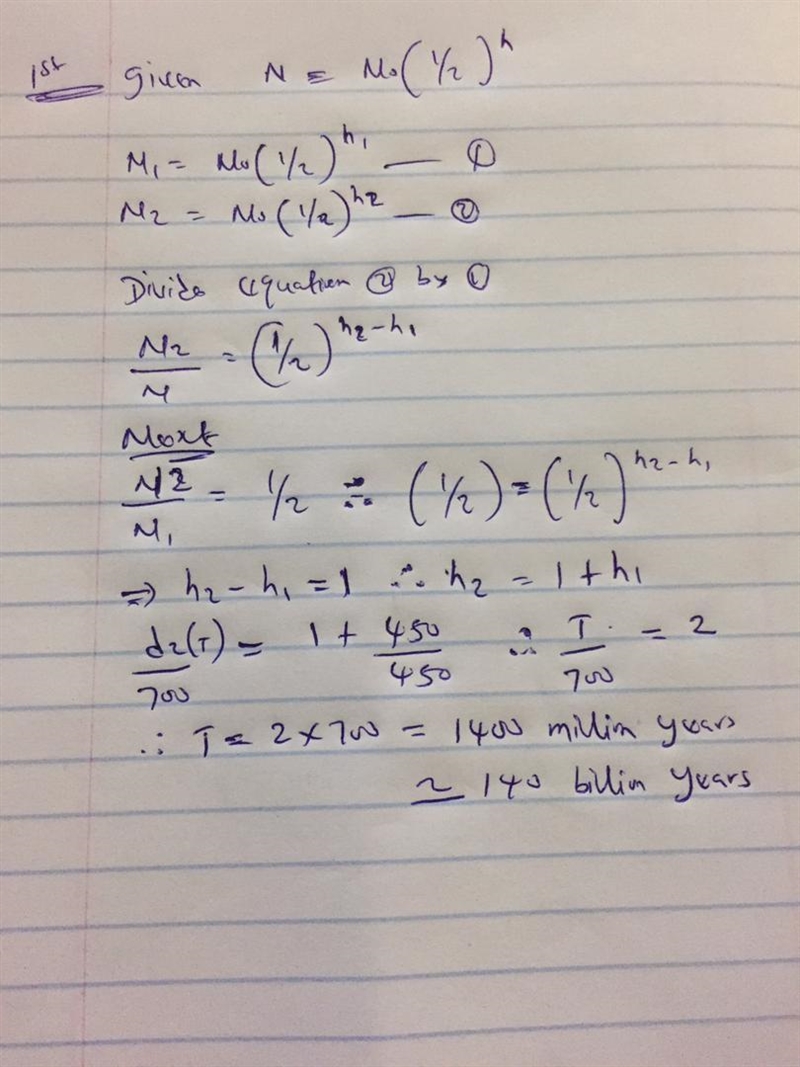 1st Given N = No(1/2)^h
N1 = No(1/2)^h1 — ①
N2 = No(1/2)^h2 — ②
Divide equation ② by ①
N2/N = (1/2)^h2-h1
Next
N2/N1 = 1/2 ∴ (1/2) = (1/2)^h2-h1
⇒ h2 - h1 = 1 ∴ h2 = 1 + h1
d2(T)/700 = 1 + 450/450 ∴ T/700 = 2
∴ T = 2 × 700 = 1400 million years
≃ 140 billion years